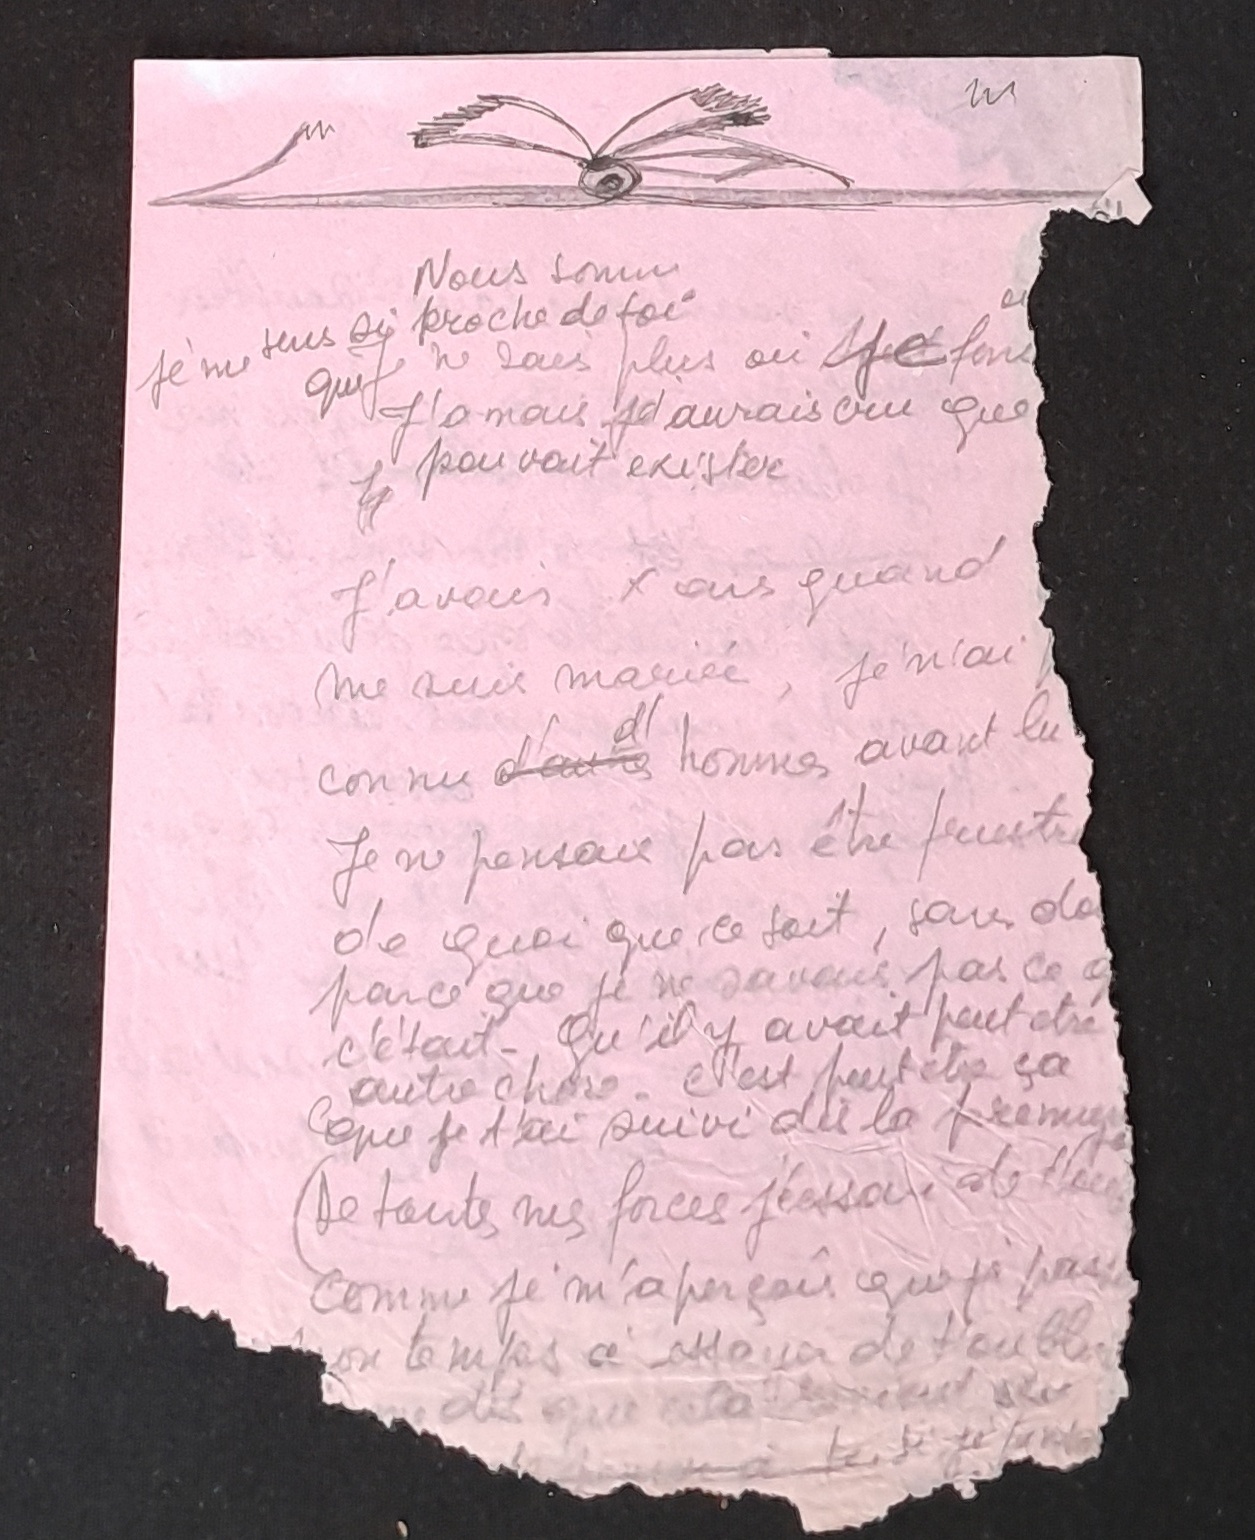 Nous somm
je me sens si proche de toi
que je ne sais plus où je fons
J'amais j'aurais cru que
pouvait exister
J'avais x ans quand
me suis mariée, je n'ai
connu d'autres d' hommes avant lu
Je ne pensais pas être frustr
de quoi que ce soit, sans do
parce que je ne savais pas ce q
c'était - Qu'il y avait peut etre
autre chose. c'est peut etre ça
que je t'ai suivi dès la premi
De toutes mes forces j'essai de t'ou
Comme je m'aperçois que je pas
on temps à essayer de t'oubl
dis que cela
si je